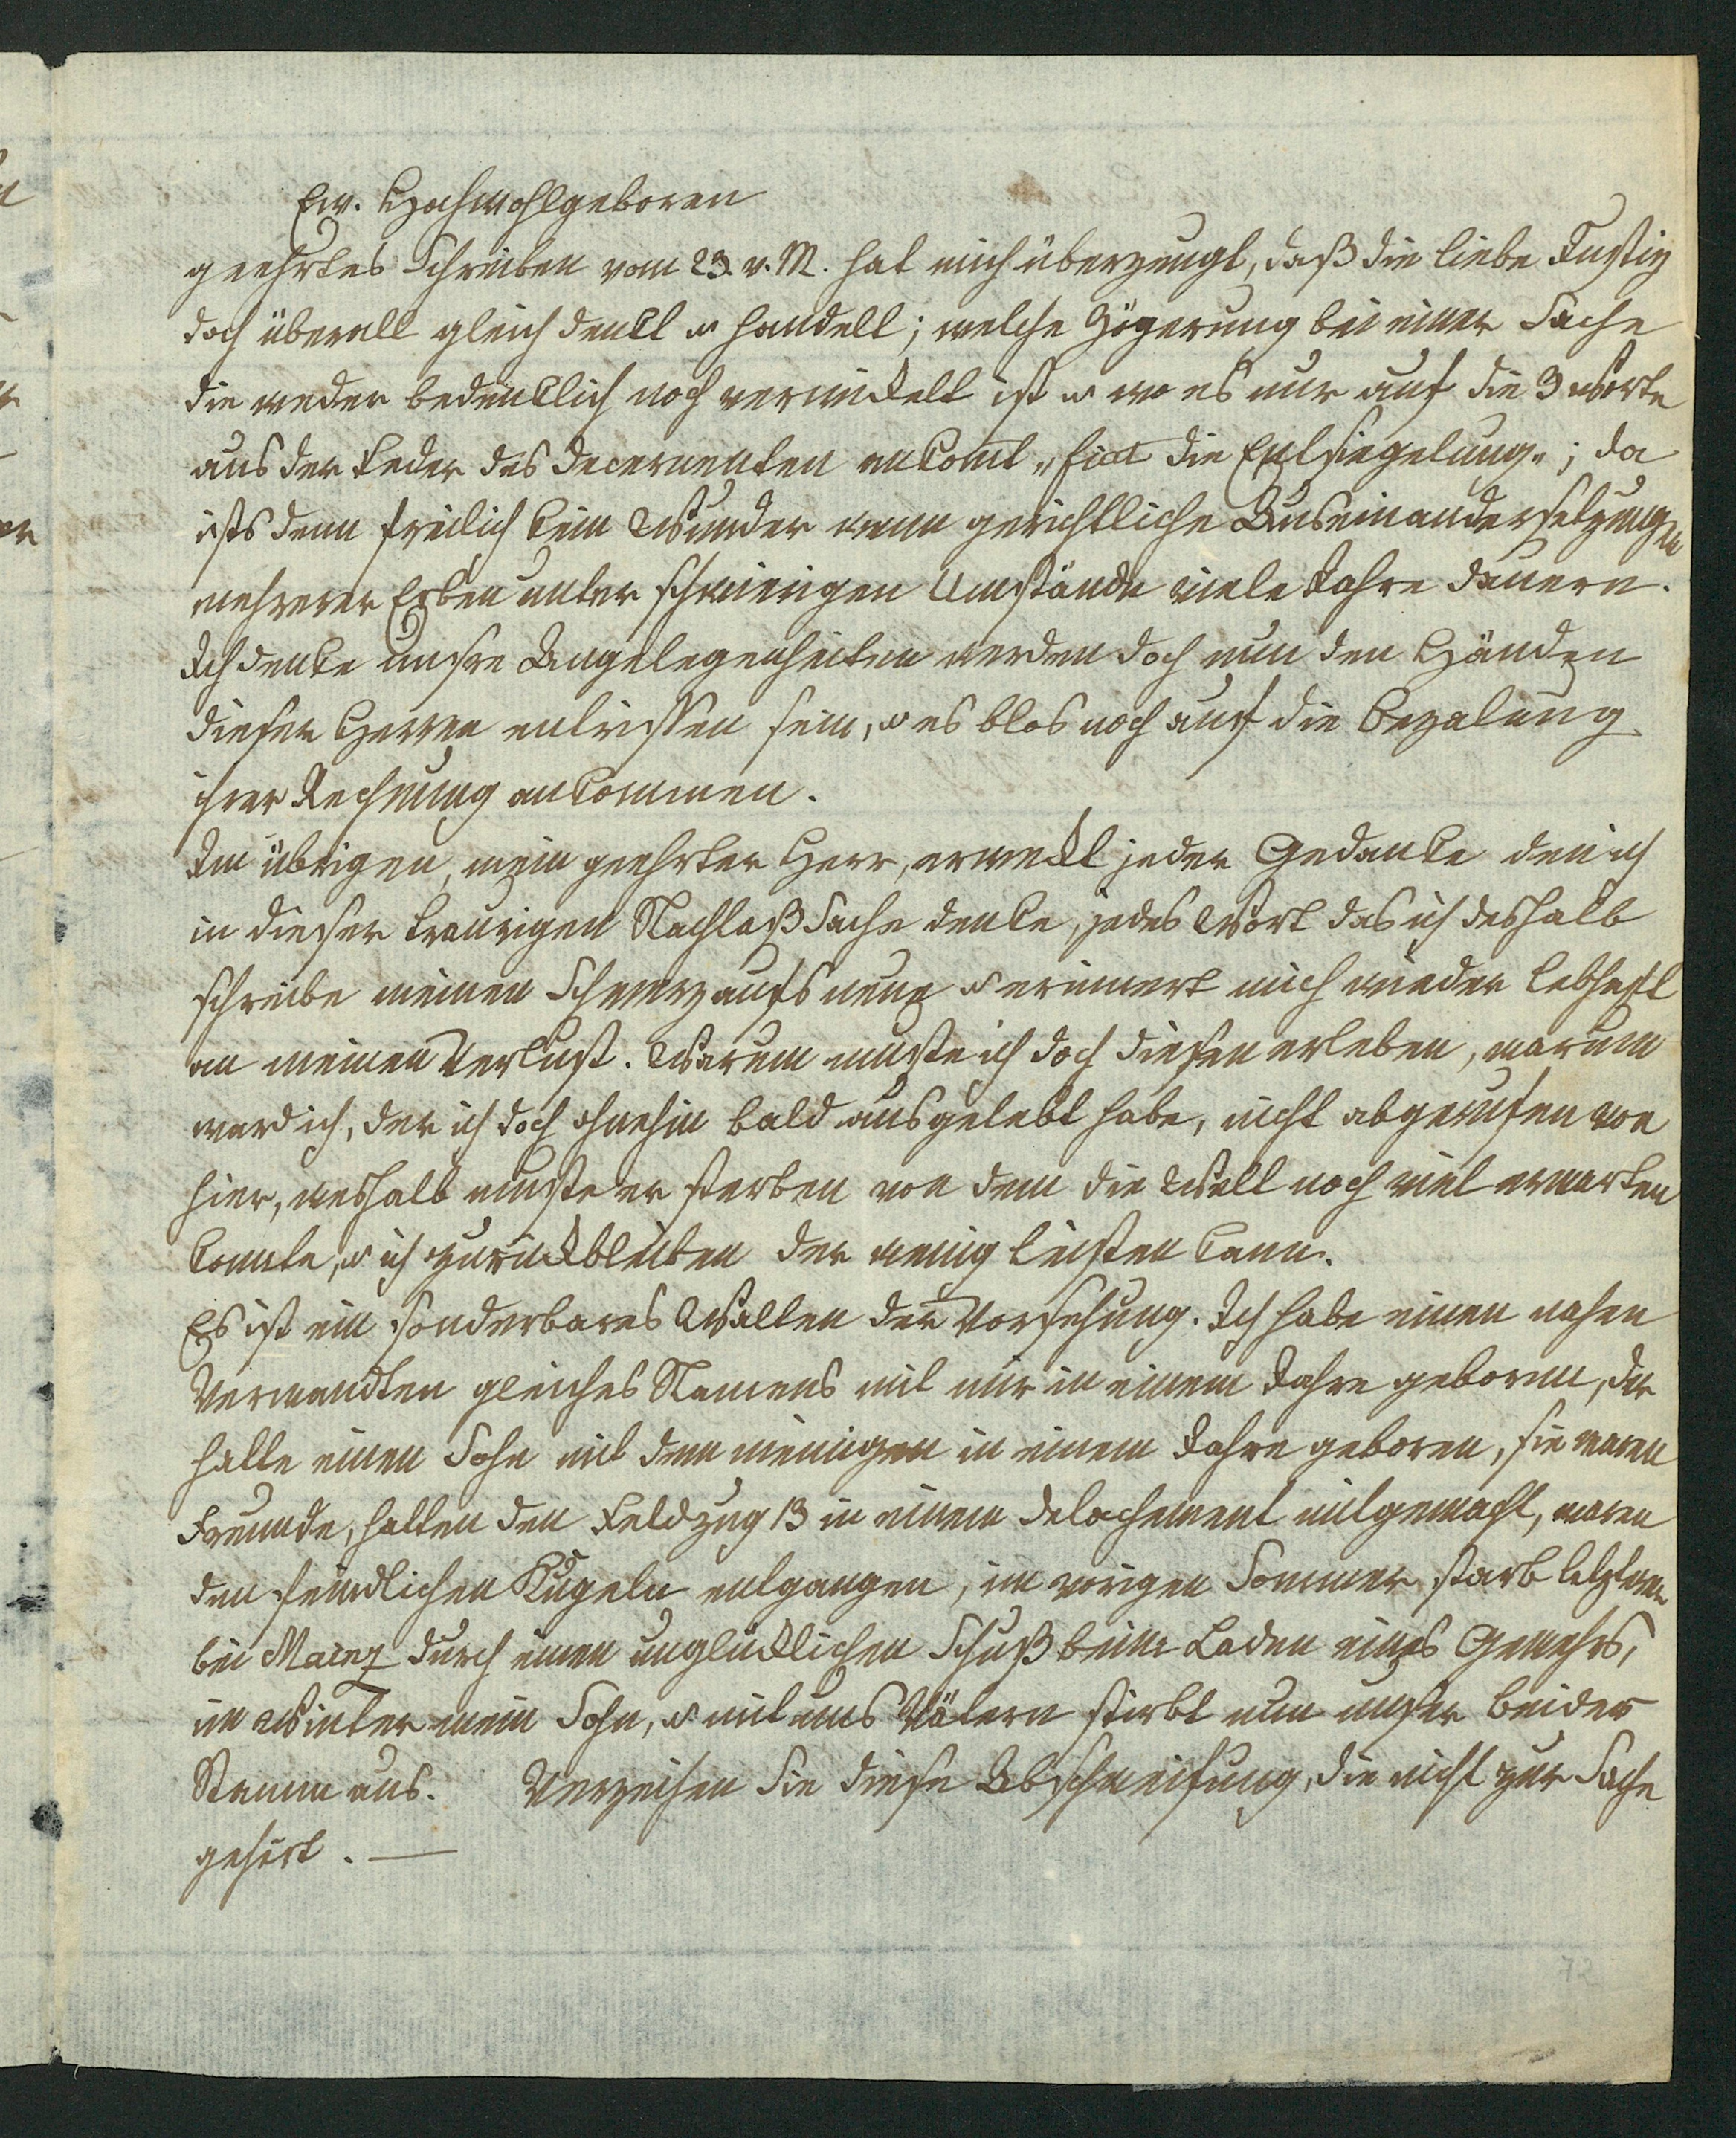 Ew. Hochwohlgeboren
geehrtes Schreiben vom 23. v. M. hat mich überzeugt, daß die liebe Justiz
doch überall gleich denkt u handelt; welche Zögerung bei einer Sache
die weder bedenklich noch verwickelt ist u wo es nur auf die 3 Worte
aus der Feder des Decernenten ankomt „fiat die Entsiegelung"; da
ists denn freilich kein Wunder wenn gerichtliche Auseinandersetzungen
mehrerer Erben unter schwierigen Umstände viele Jahre dauern.
Ich denke unsre Angelegenheiten werden doch nun den Händen
dieser Herren entrissen sein, u es blos noch auf die Bezalung
ihrer Rechnung ankommen.
Im übrigen, mein geehrter Herr, erwekt jeder Gedanke den ich
in dieser traurigen Nachlaß Sache denke, jedes Wort das ich deshalb
schreibe meinen Schmerz aufs neue u erinnert mich wieder lebhaft
an meinen Verlust. Warum muste ich doch diesen erleben, warum
ward ich, der ich doch ohnehin bald ausgelebt habe, nicht abgerufen von
hier, weshalb muste er sterben von dem die Welt noch viel erwarten
konnte, u ich zurückbleiben der wenig leisten kann.
Es ist ein sonderbares Walten der Vorsehung. Ich habe einen nahen
Verwandten gleiches Namens mit mir in einem Jahre geboren, der
hatte einen Sohn mit dem meinigen in einem Jahre geboren, sie waren
Freunde, hatten den Feldzug 13 in einem Detachement mitgemacht, waren
den feindlichen Kugeln entgangen, im vorigen Sommer starb letzterer
bei Mainz durch einen unglücklichen Schuß beim Laden eines Gewehrs,
im Winter mein Sohn, u mit uns Vätern stirbt nun unser beider
Stamm aus. Verzeihen Sie diese Abschweifung, die nicht zur Sache
gehört. —
72